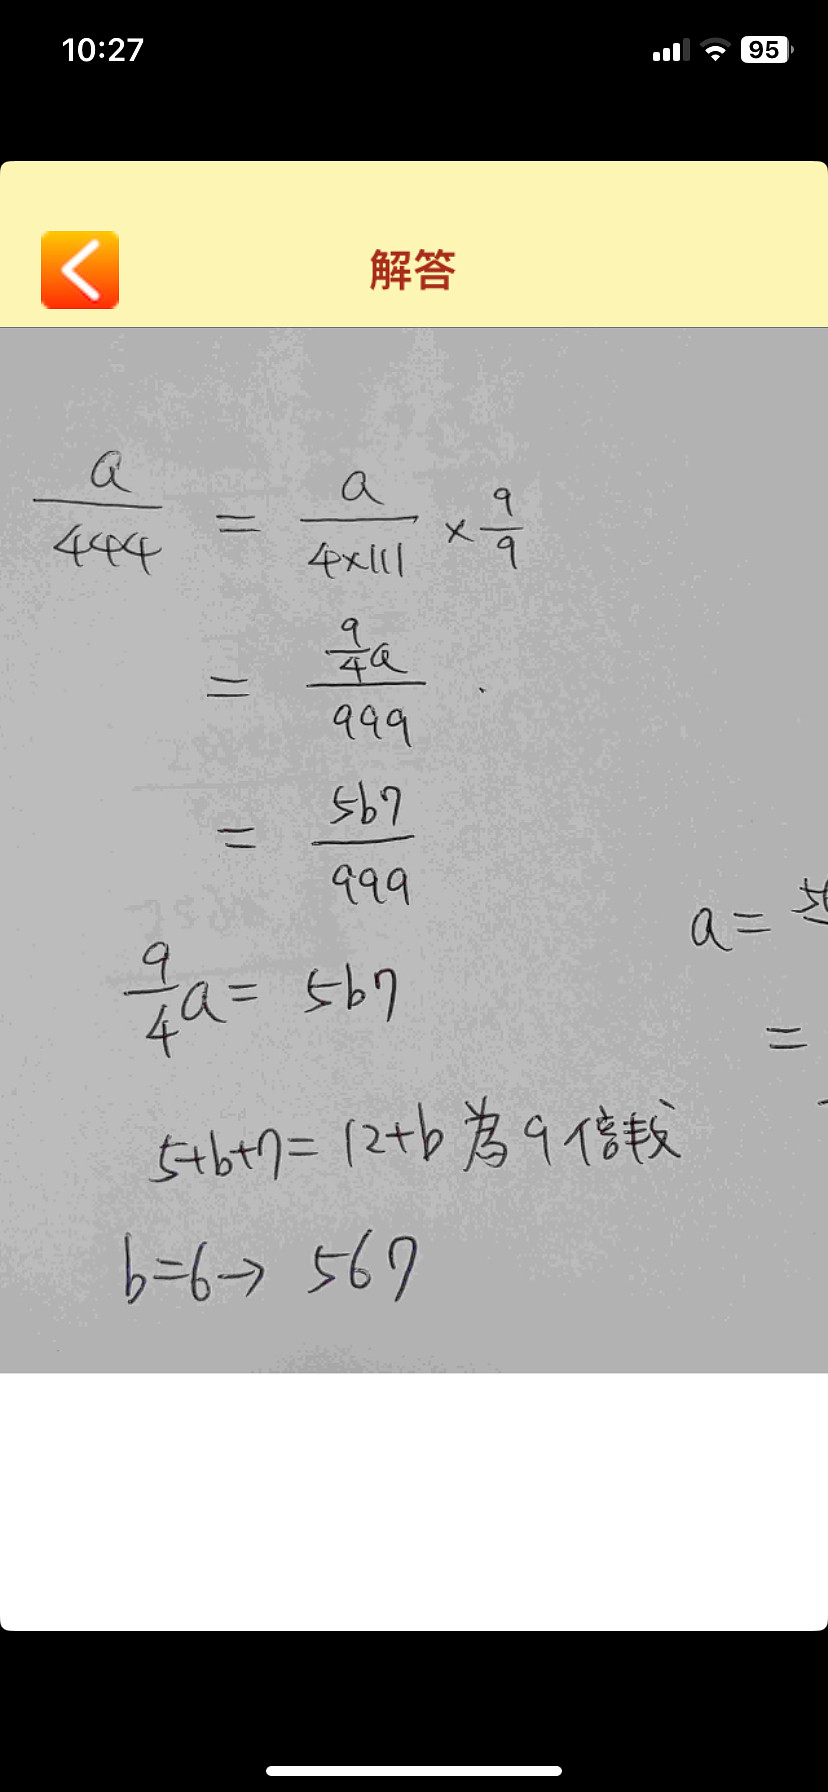 10:27
95
解答
a/444 = a/(4×111) × 9/9
= (9/4 a)/999 .
= 5b7/999
9/4 a = 5b7
5+b+7= 12+b 為 9 倍數
b=6→ 567
a=
=